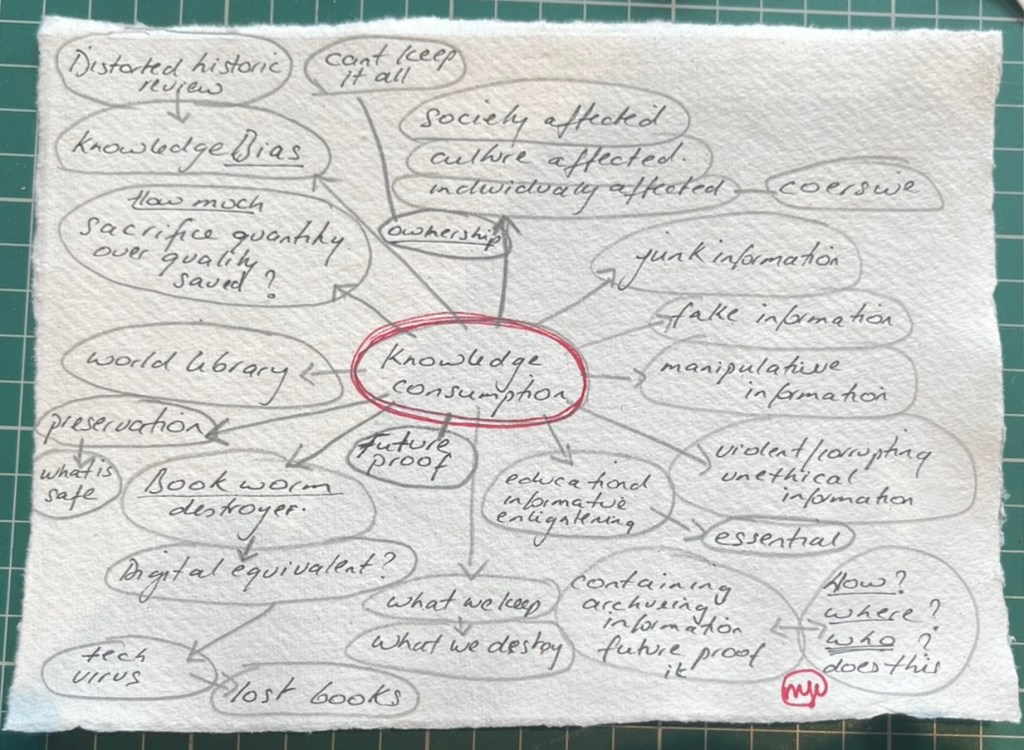 Distorted historic
review
cant keep
it all
Knowledge Bias
society affected
culture affected.
individualy affected
coersive
How much
sacrifice quantity
over quality
saved?
ownership
junk information
fake information
manipulative
information
Knowledge
consumption
world library
preservation
what is
safe
Book worm
destroyer.
Future
proof
educational
informative
enligtening
violent/corrupting
unethical
information
essential
Digital equivalent?
what we keep
what we destroy
containing
archieving
information
future proof
it
How?
where?
who?
does this
tech
virus
lost books